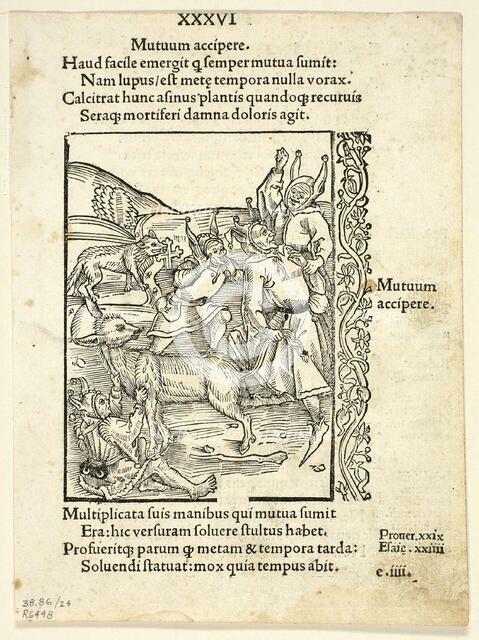 XXXVI
Mutuum accipere.
Haud facile emergit q̨ semper mutua sumit:
Nam lupus/est metę tempora nulla vorax.
Calcitrat hunc asinus plantis quandoq; recuruis
Seraq; mortiferi damna doloris agit.
Mutuum
accipere.
Multiplicata suis manibus qui mutua sumit
Era: hic versuram soluere stultus habet.
Profueritq; parum q̨ metam & tempora tarda:
Soluendi statuat: mox quia tempus abit.
Prouer. xxix
Esaię. xxiiii
e.iiii.
38.86/24
R6448